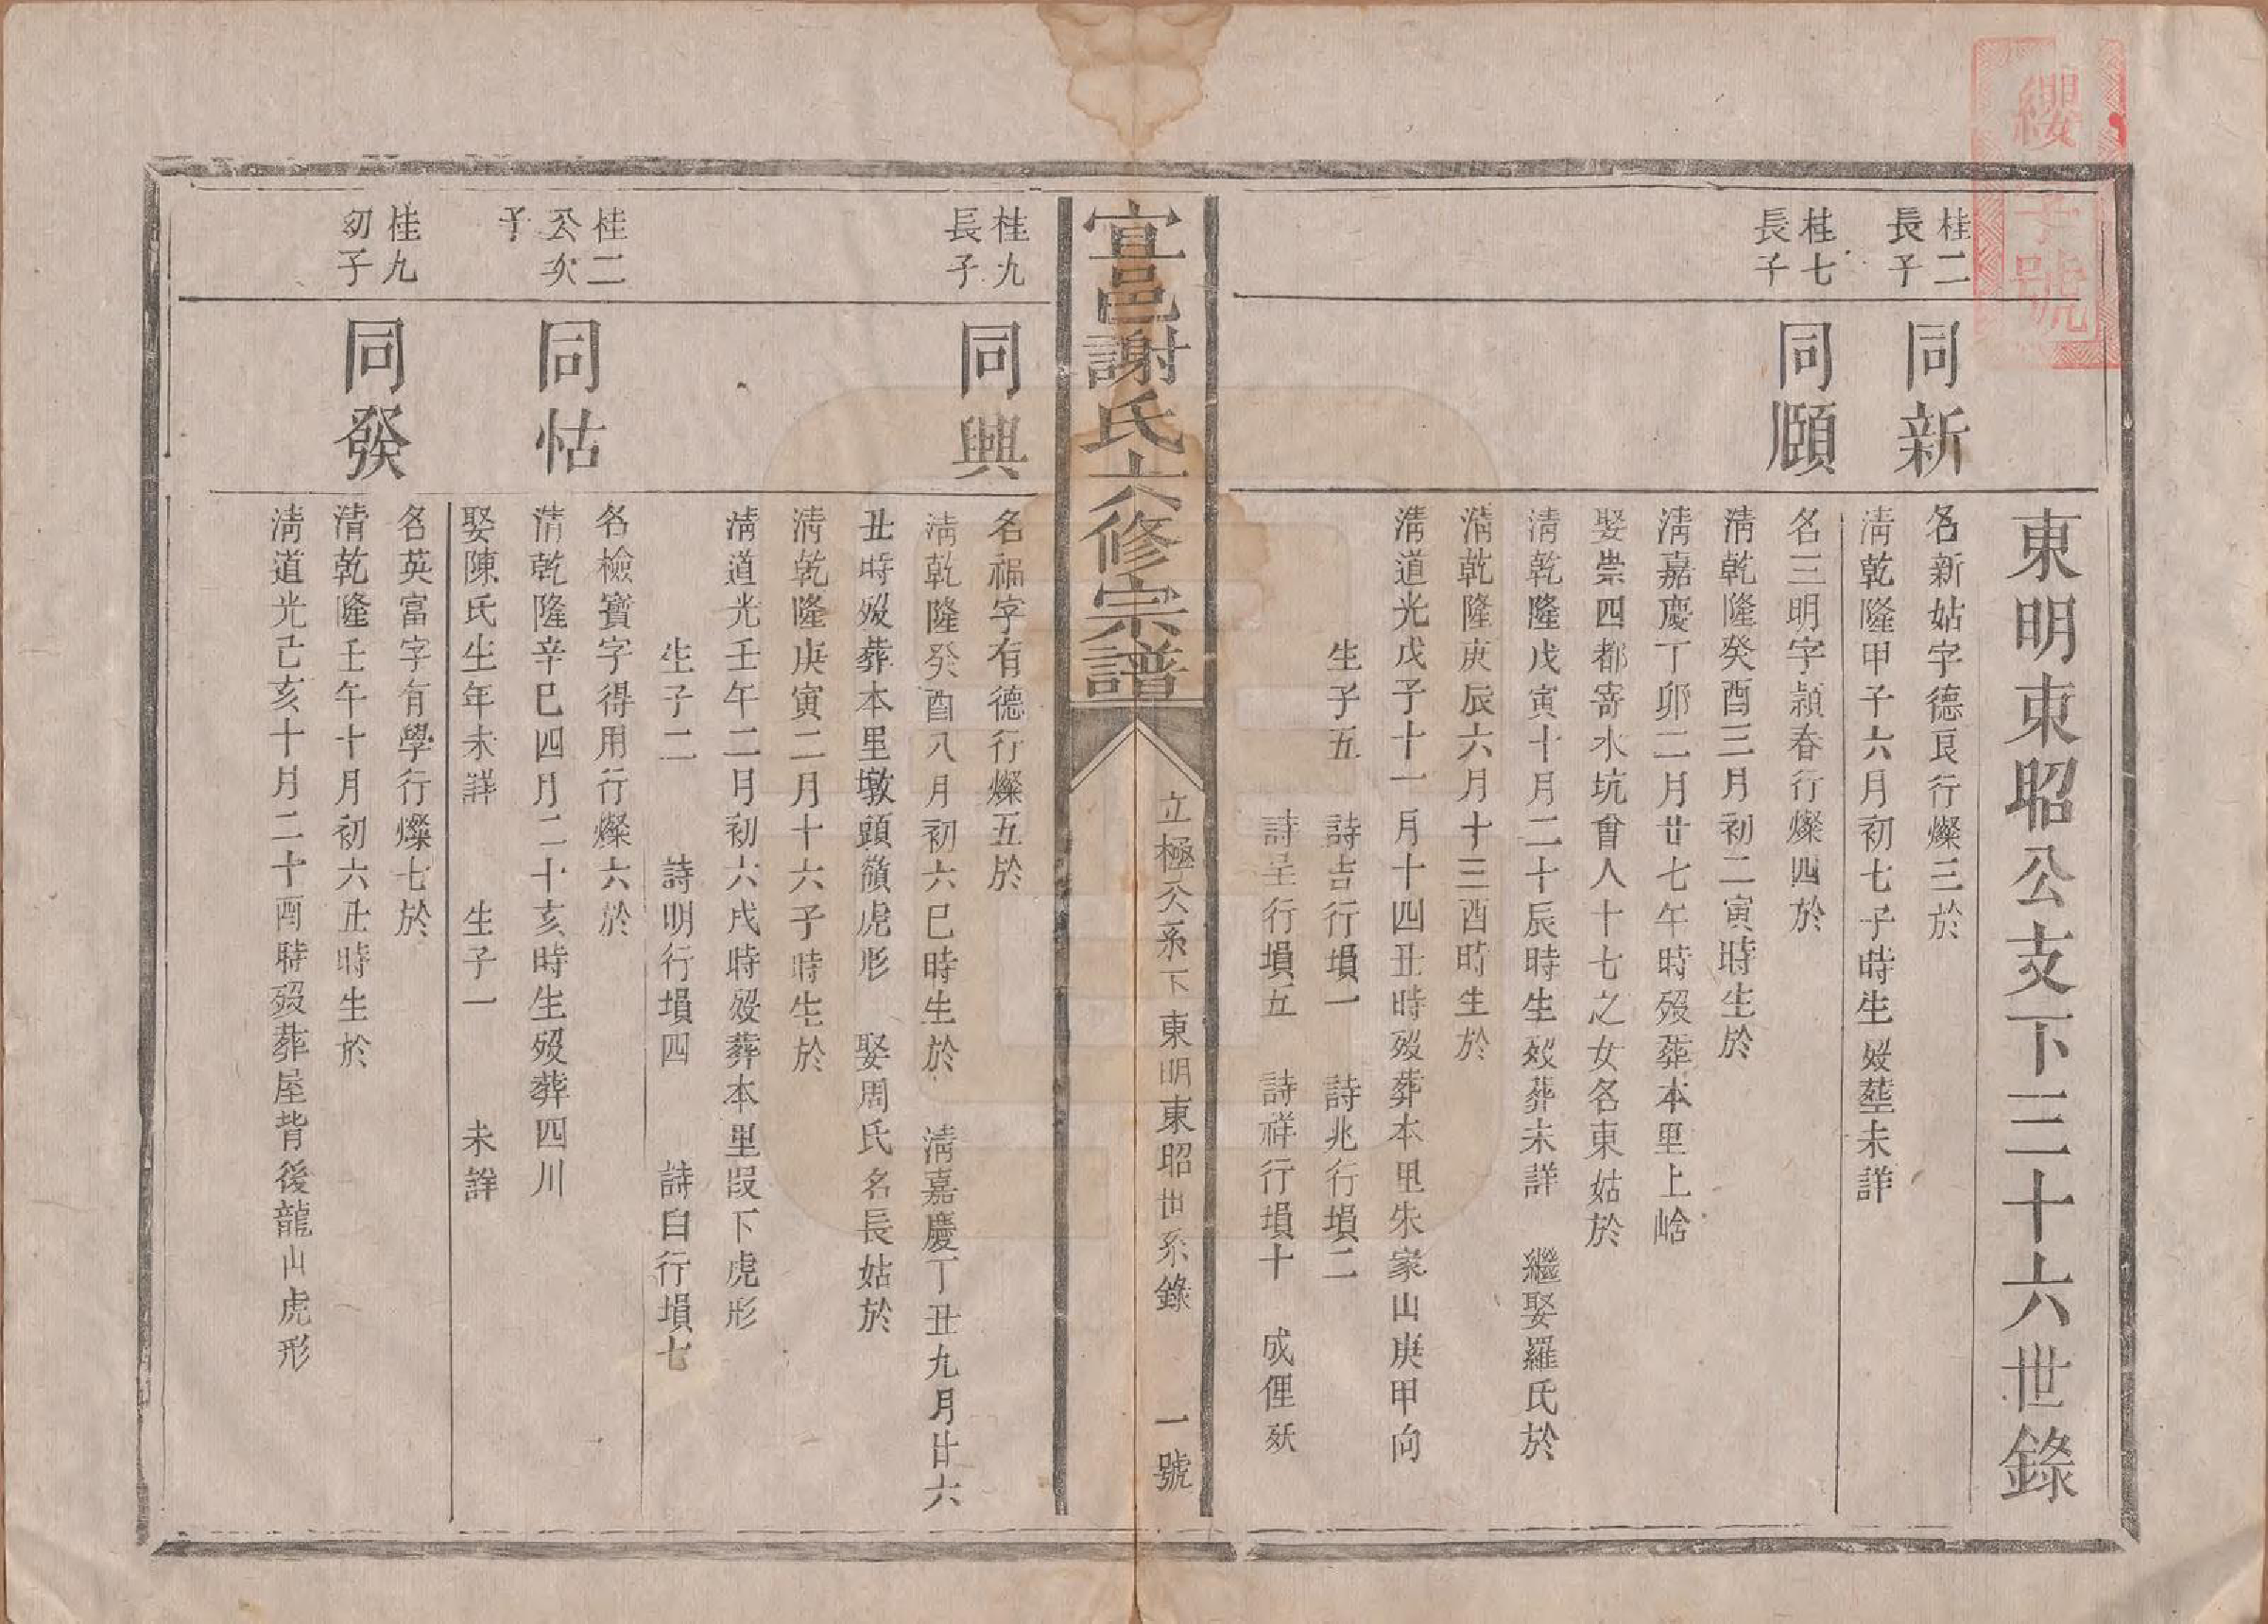 纓字號
東明東昭公支下三十六世錄
桂二
長子
同新
名新姑字德良行燦三於
清乾隆甲子六月初七子時生歿塟未詳
桂七
長子
同願
名三明字穎春行燦四於
清乾隆癸酉三月初二寅時生於
清嘉慶丁卯二月廿七午時歿葬本里上峆
娶崇四都寄水坑曾人十七之女名東姑於
清乾隆戊寅十月二十辰時生歿葬未詳 繼娶羅氏於
清乾隆庚辰六月十三酉時生於
清道光戊子十一月十四丑時歿葬本里朱家山庚甲向
生子五 詩吉行塤一 詩兆行塤二
詩呈行塤五 詩祥行塤十 成俚殀
宜邑謝氏六修宗譜
立極公系下東明東昭世系錄 一號
桂九
長子
同興
名福字有德行燦五於
清乾隆癸酉八月初六巳時生於 清嘉慶丁丑九月廿六
丑時歿葬本里墩頭嶺虎形 娶周氏名長姑於
清乾隆庚寅二月十六子時生於
清道光壬午二月初六戌時歿葬本里段下虎形
生子二 詩明行塤四 詩白行塤七
桂二
公次
子
同怙
名檢寶字得用行燦六於
清乾隆辛巳四月二十亥時生歿葬四川
娶陳氏生年未詳 生子一 未詳
桂九
幼子
同發
名英富字有學行燦七於
清乾隆壬午十月初六丑時生於
清道光己亥十月二十酉時歿葬屋背後龍山虎形